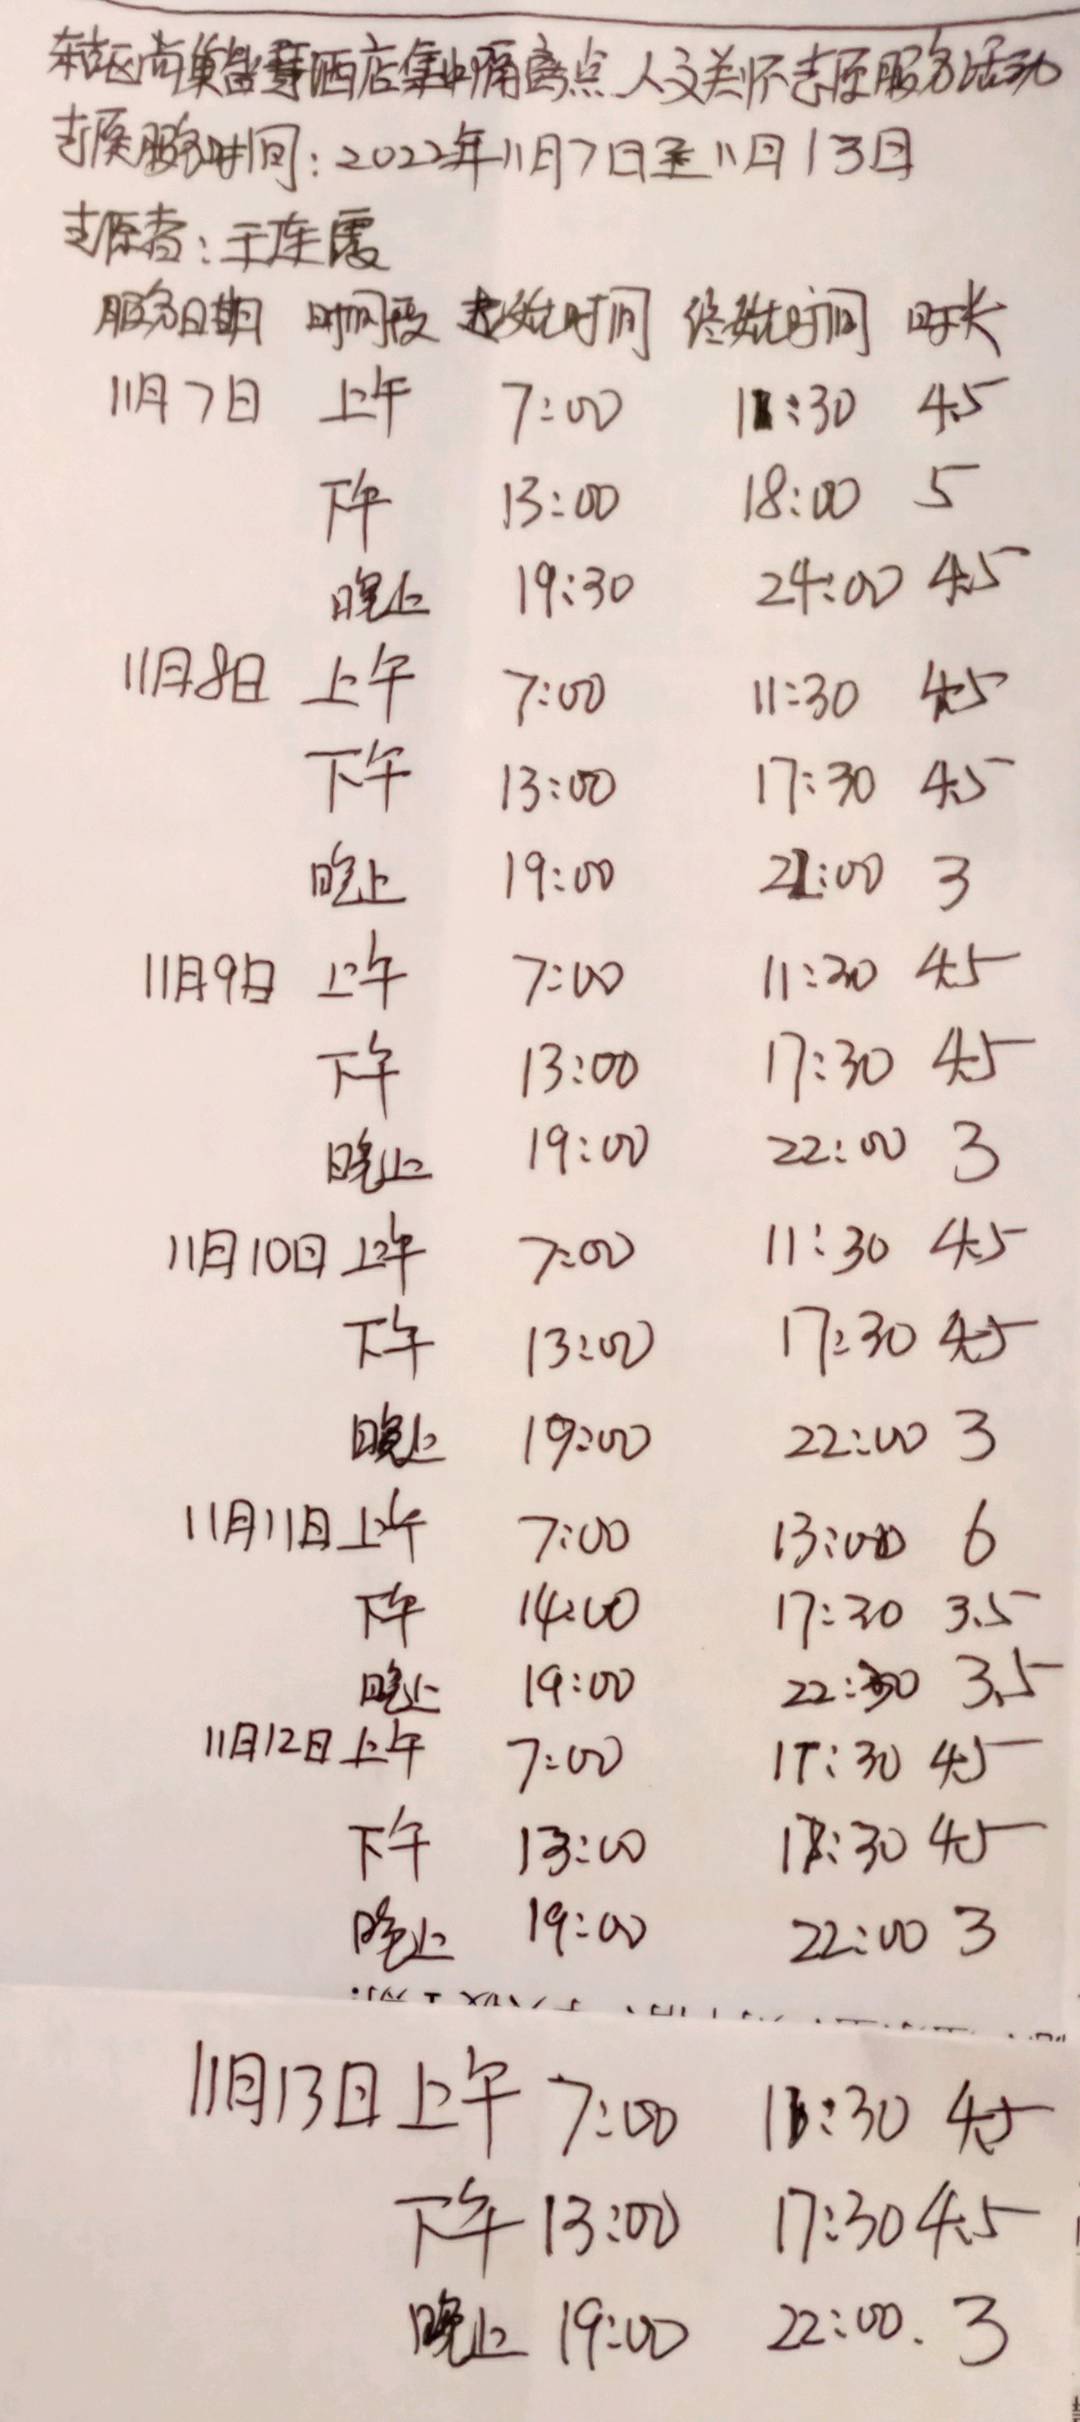 东站区尚臬酒店集中隔离点人文关怀志愿服务活动
志愿服务时间：2022年11月7日至11月13日
志愿者：于连霞
服务日期 时间段 起始时间 终始时间 时长
11月7日 上午 7:00 11:30 4.5
下午 13:00 18:00 5
晚上 19:30 24:00 4.5
11月8日 上午 7:00 11:30 4.5
下午 13:00 17:30 4.5
晚上 19:00 22:00 3
11月9日 上午 7:00 11:30 4.5
下午 13:00 17:30 4.5
晚上 19:00 22:00 3
11月10日 上午 7:00 11:30 4.5
下午 13:00 17:30 4.5
晚上 19:00 22:00 3
11月11日 上午 7:00 13:00 6
下午 14:00 17:30 3.5
晚上 19:00 22:30 3.5
11月12日 上午 7:00 11:30 4.5
下午 13:00 17:30 4.5
晚上 19:00 22:00 3
11月13日 上午 7:00 11:30 4.5
下午 13:00 17:30 4.5
晚上 19:00 22:00. 3